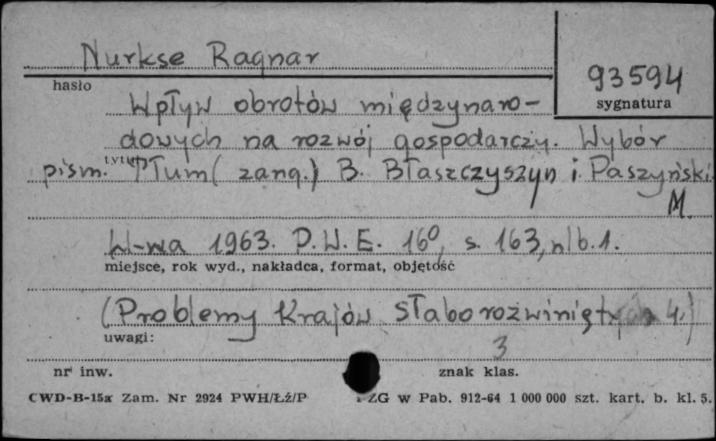 Nurkse Ragnar
93594
hasło
sygnatura
Wpływ obrotów międzynaro-
dowych na rozwój gospodarczy. Wybór
tytuł
pism. Tłum( zang.) B. Błaszczyszyn i Paszyński
M.
W-wa 1963. P.W.E. 16º, s. 163, nlb. 1.
miejsce, rok wyd., nakładca, format, objętość
(Problemy Krajów słabo rozwiniętych 4.)
uwagi:
3
nr inw.
znak klas.
CWD-B-15a Zam. Nr 2924 PWH/Łź/P
ZG w Pab. 912-64 1 000 000 szt. kart. b. kl. 5.